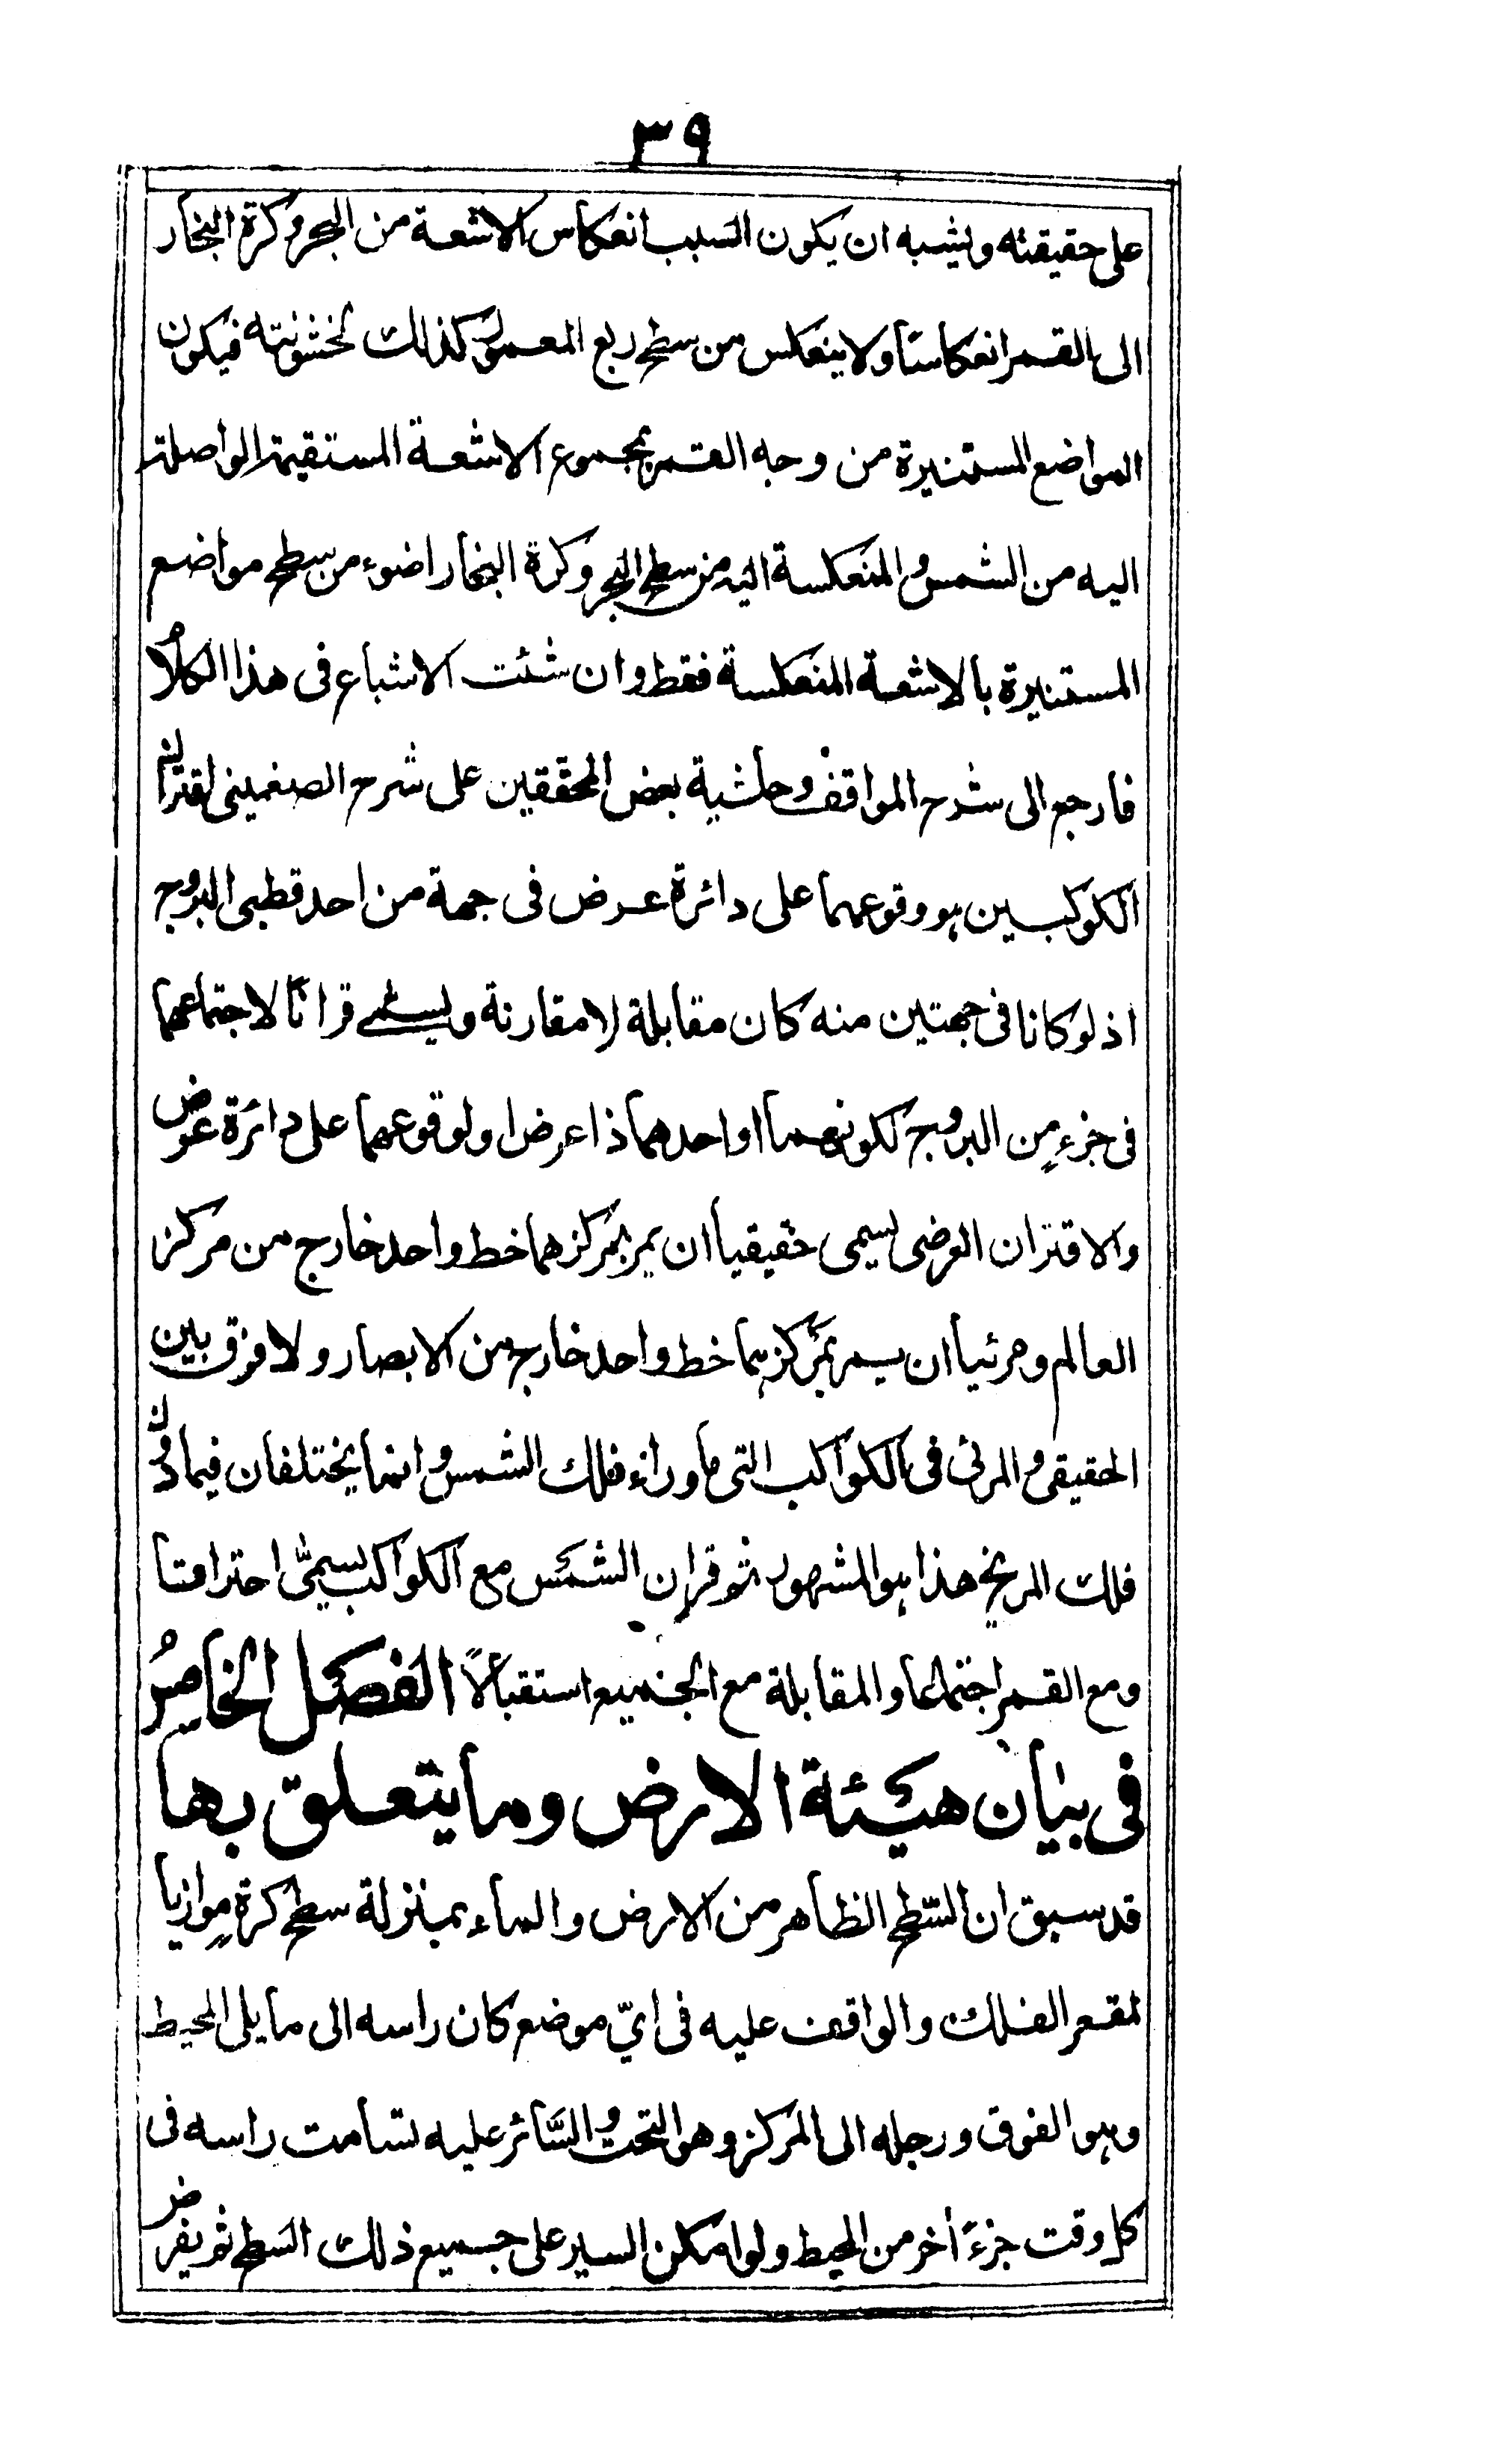 ٣٩
على حقيقته ويشبه ان يكون السبب انعكاس الاشعة من البحر وكرة البخار
الى القمر انعكاسا ولا ينعكس من سطح ربع المعمور كذلك لخشونته فيكون
المواضع المستنيرة من وجه القمر بمجموع الاشعة المستقيمة الواصلة
اليه من الشمس والمنعكسة اليه من سطح البحر وكرة البخار اضوء من سطح مواضع
المستنيرة بالاشعة المنعكسة فقط وان شئت الاشباع فى هذا الكلام
فارجع الى شرح المواقف وحاشية بعض المحققين على شرح الچغمينى اقتران
الكوكبين هو وقوعهما على دائرة عرض فى جهة من احد قطبى البروج
اذ لو كانا فى جهتين منه كان مقابلة لا مقارنة ويسمى قرانًا لاجتماعهما
فى جزءٍ من البروج لكونهما او احدهما ذا عرض او لوقوعهما على دائرة عرض
والاقتران العرضى يسمى حقيقيا ان يمر بمركزهما خط واحد خارج من مركز
العالم ومرئيا ان يمر بمركزهما خط واحد خارج من الابصار ولا فرق بين
الحقيقى والمرئى فى الكواكب التى ما وراء فلك الشمس وانما يختلفان فيما دون
فلك المريخ هذا هو المشهور ثم قران الشمس مع الكواكب يسمّى احتراقا
ومع القمر اجتماعا والمقابلة مع الجميع استقبالاً الفصل الخامسُ
فى بيان هيئة الارض وما يتعلق بها
قد سبق ان السّطح الظاهر من الارض والماء بمنزلة سطح كرةٍ موازيا
لمقعر الفلك والواقف عليه فى ايّ موضع كان راسه الى ما يلى المحيط
وهو الفوق ورجله الى المركز وهو التحت والسّائر عليه تسامت راسه فى
كل وقت جزءً آخر من المحيط ولو امكن السير على جميع ذلك السطح ثم يفرض